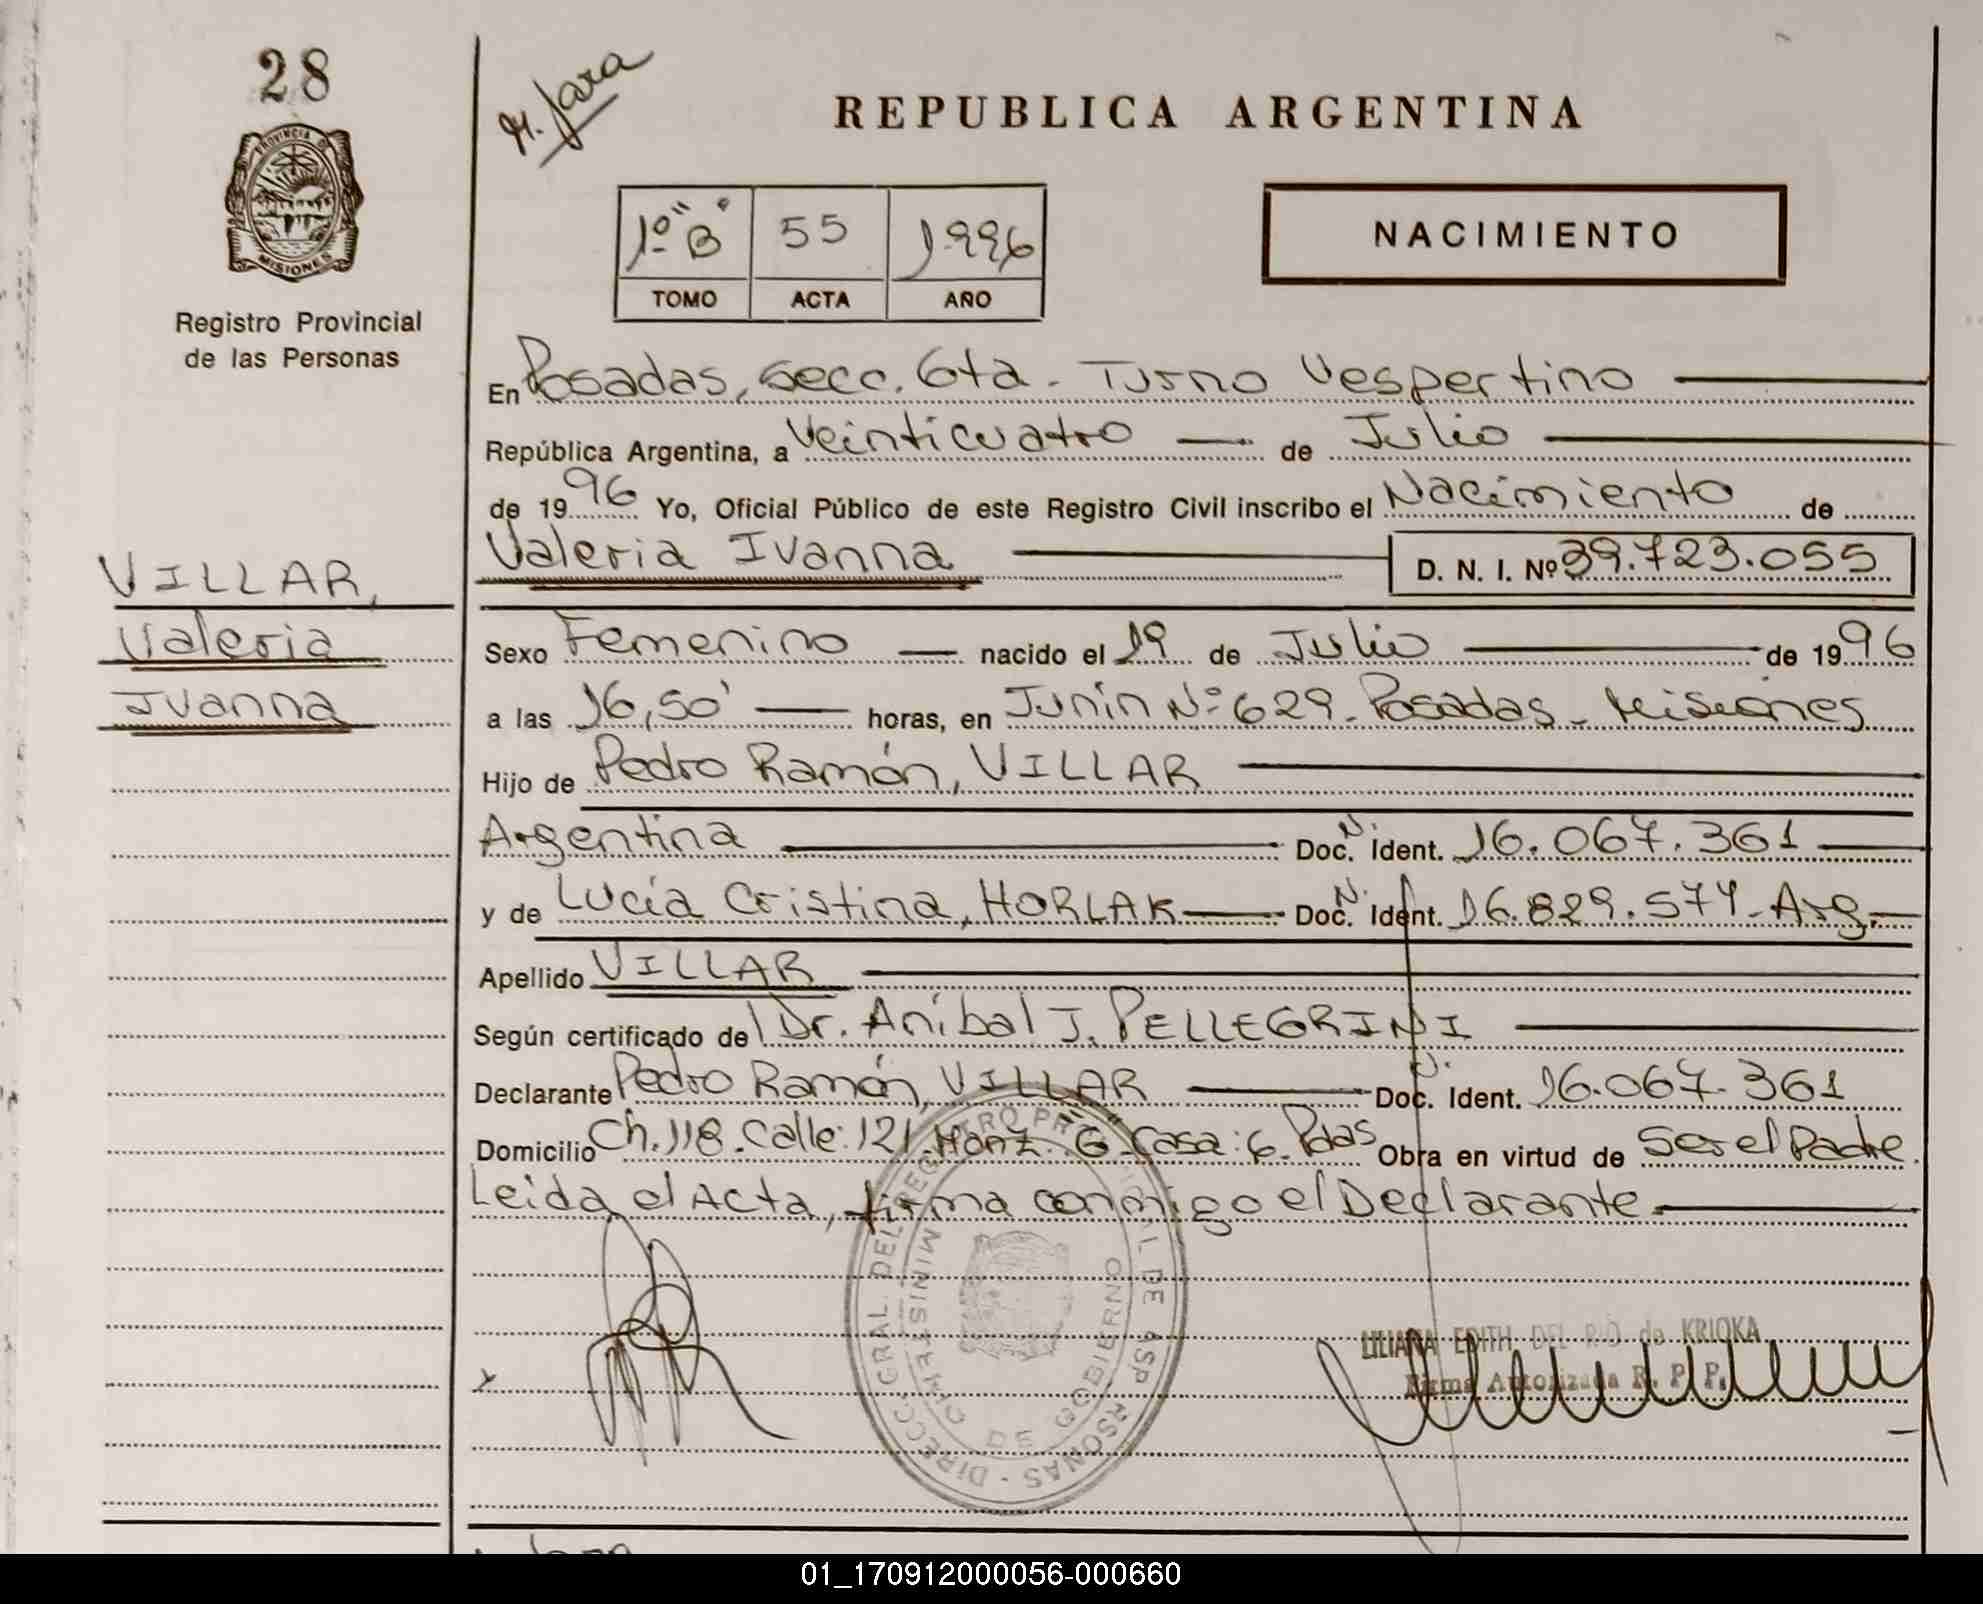 28
PROVINCIA DE
MISIONES
Registro Provincial
de las Personas
M. Jara
REPUBLICA ARGENTINA
1º "B" 55 1996
TOMO ACTA AÑO
NACIMIENTO
En Posadas, Secc. 6ta - Turno Vespertino
República Argentina, a Veinticuatro de Julio
de 1996 Yo, Oficial Público de este Registro Civil inscribo el Nacimiento de
Valeria Ivanna D. N. I. Nº 39.723.055
VILLAR,
Valeria
Ivanna
Sexo Femenino nacido el 19 de Julio de 1996
a las 16,50' horas, en Junín Nº 629 - Posadas - Misiones
Hijo de Pedro Ramón, VILLAR
Argentina Doc. N. Ident. 16.067.361
y de Lucía Cristina, HORLAK Doc. N. Ident. 16.829.574 - Arg.
Apellido VILLAR
Según certificado de Dr. Aníbal J. PELLEGRINI
Declarante Pedro Ramón, VILLAR Doc. N. Ident. 16.067.361
Domicilio Ch. 118 - Calle: 121 - Manz. "G" Casa: 6 - Pdas Obra en virtud de Ser el Padre.
Leida el Acta, firma conmigo el Declarante
DIRECC. GRAL. DEL REGISTRO PROVINCIAL DE LAS PERSONAS
MINISTERIO DE GOBIERNO
LILIANA EDITH DEL RIO de KRIOKA
Firma Autorizada R. P. P.
01_170912000056-000660